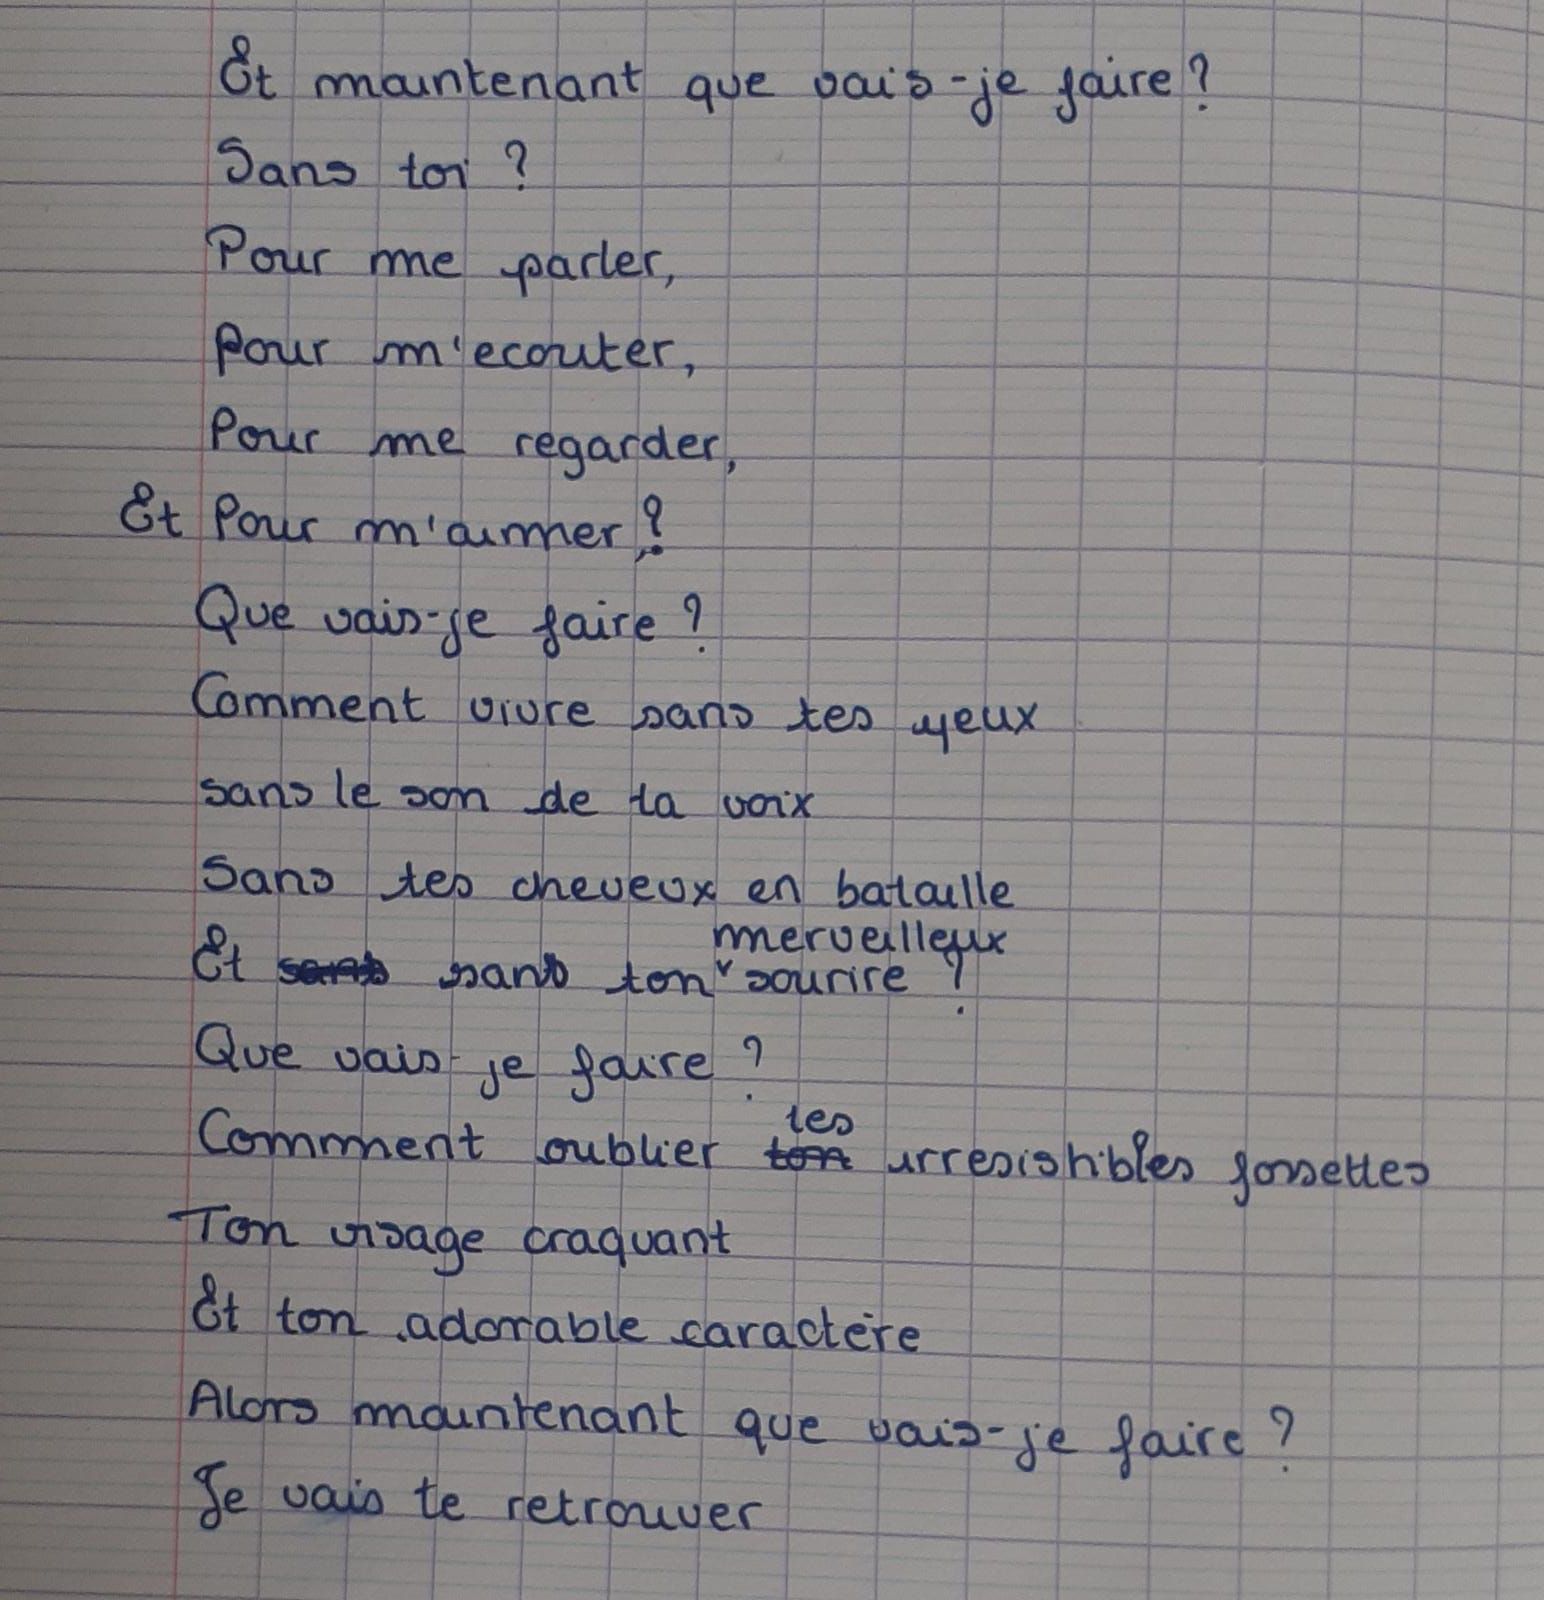 Et maintenant que vais-je faire ?
Sans toi ?
Pour me parler,
Pour m'ecouter,
Pour me regarder,
Et Pour m'aimer ?
Que vais-je faire ?
Comment vivre sans tes yeux
sans le son de ta voix
Sans tes cheveux en bataille
merveilleux
Et sans sans ton sourire ?
Que vais-je faire ?
tes
Comment oublier ton irresistibles fossettes
Ton visage craquant
Et ton adorable caractère
Alors maintenant que vais-je faire ?
Je vais te retrouver